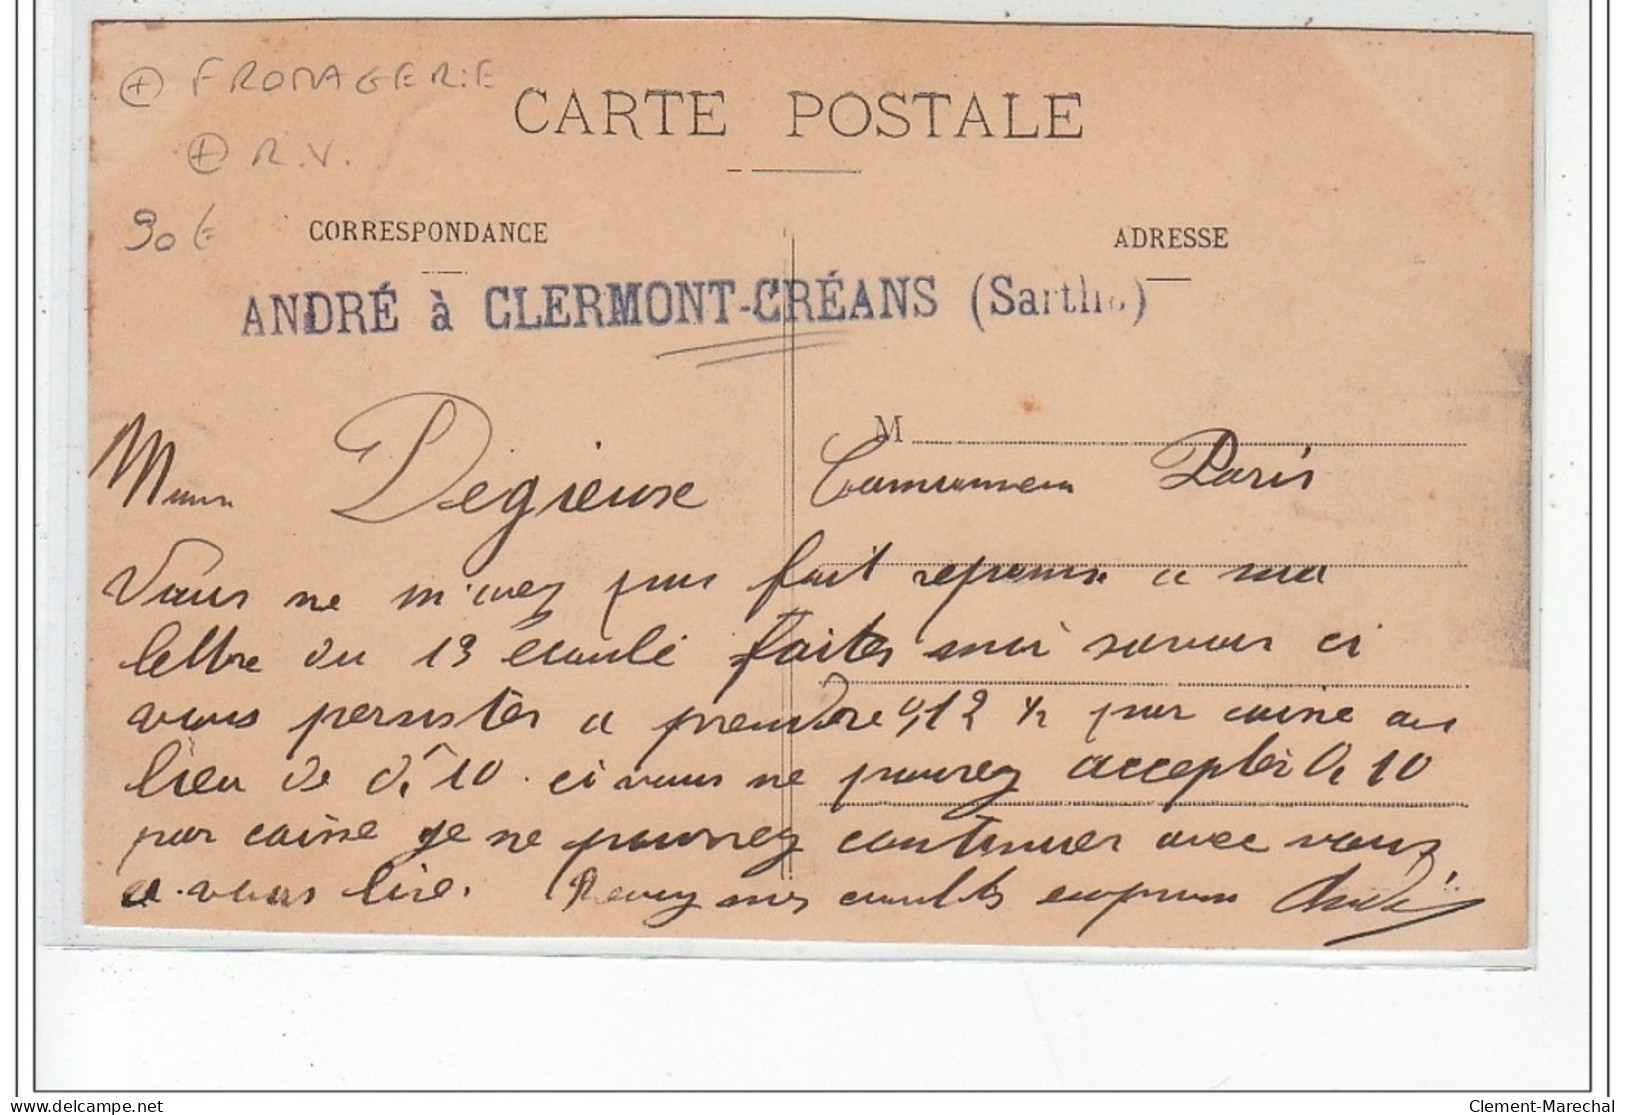 + FROMAGERIE
CARTE POSTALE
+ R.V.
90€
CORRESPONDANCE
ADRESSE
ANDRÉ à CLERMONT-CRÉANS (Sarthe)
M
Degieuse Paris
Vous ne m'avez pas fait reponse a ma
lettre du 13 écoulé faites moi savoir ci
vous persister a prendre 0,12 ½ par caisse au
lieu de 0,10 ci vous ne pouvez accepter 0,10
par caisse je ne pourrez continuer avec vous
a vous lire. mes empresses André
Clement-Marechal
delcampe.net